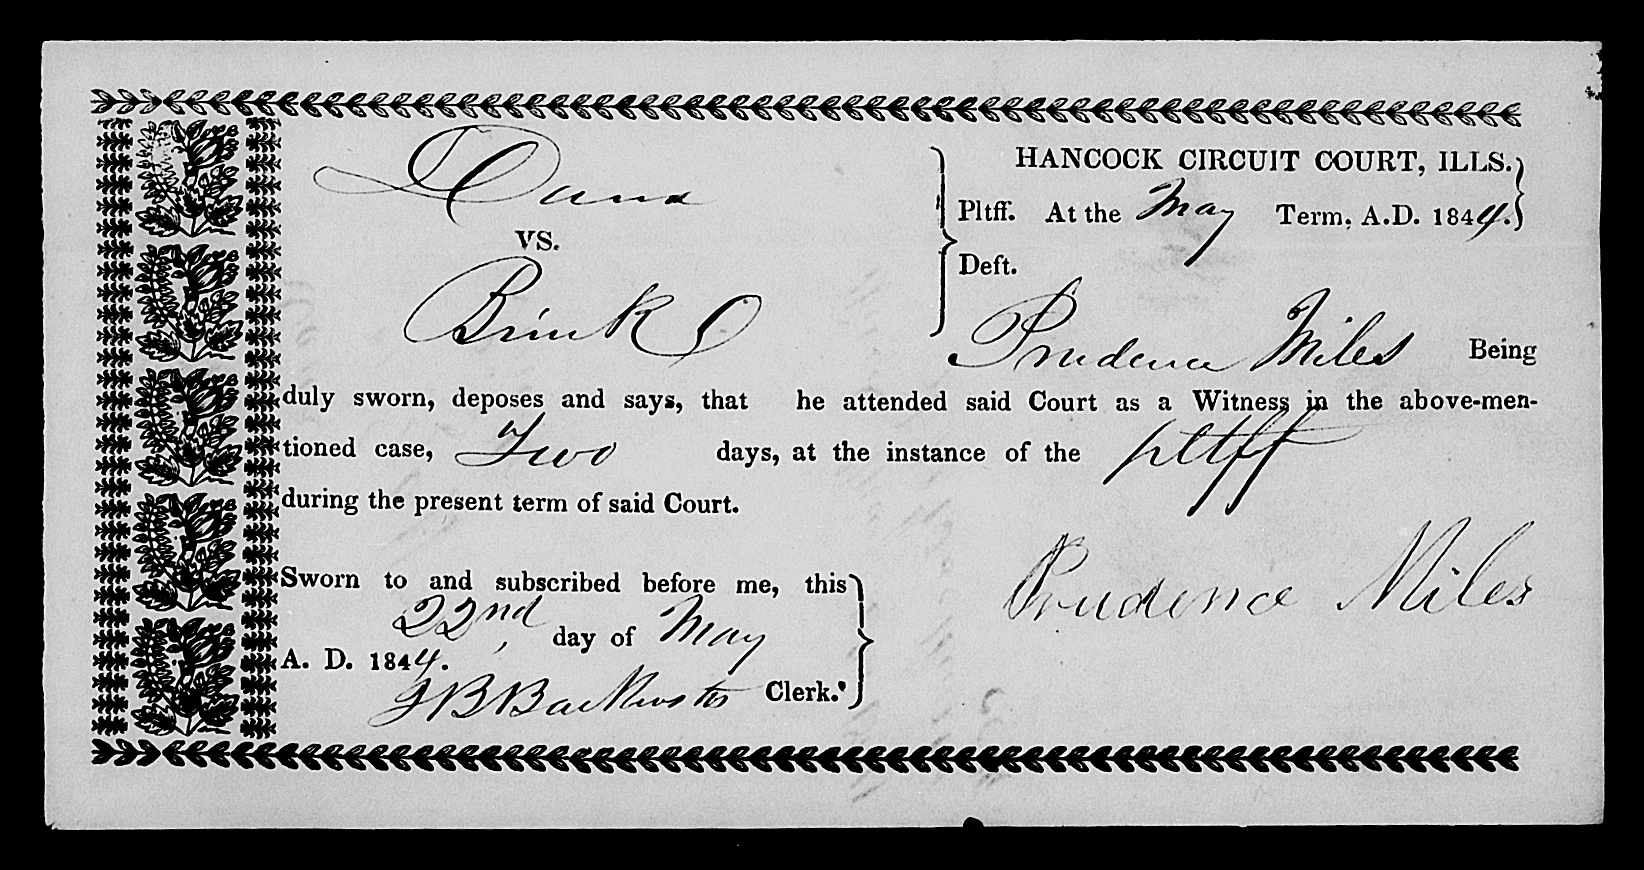 HANCOCK CIRCUIT COURT, ILLS.
Dana
Pltff. At the May Term, A.D. 1844.
VS.
Deft.
Brink
Prudence Miles Being
duly sworn, deposes and says, that he attended said Court as a Witness in the above-men-
tioned case, Two days, at the instance of the pltff
during the present term of said Court.
Sworn to and subscribed before me, this
22nd day of May
A. D. 1844.
J B Backenstos Clerk.
Prudence Miles